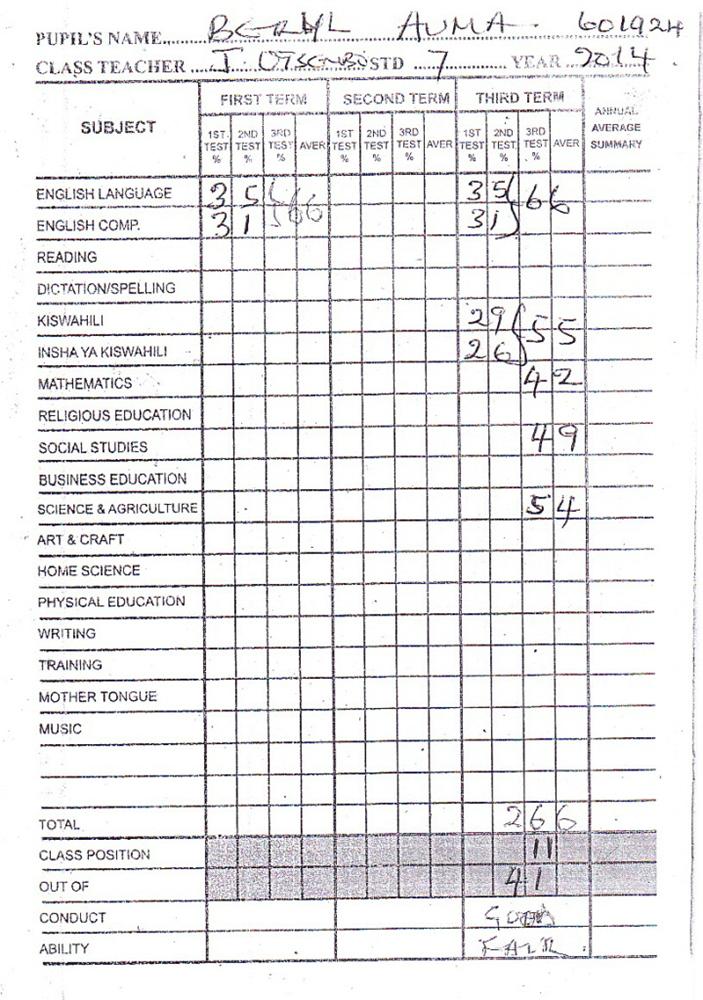 PUPIL'S NAME BERYL AUMA. 601924
CLASS TEACHER J. STD 7 YEAR 2014.
SUBJECT FIRST TERM SECOND TERM THIRD TERM ANNUAL AVERAGE SUMMARY
1ST TEST % 2ND TEST % 3RD TEST % AVER 1ST TEST % 2ND TEST % 3RD TEST % AVER 1ST TEST % 2ND TEST % 3RD TEST % AVER
ENGLISH LANGUAGE 35 66 35 66
ENGLISH COMP. 31 31
READING
DICTATION/SPELLING
KISWAHILI 29 55
INSHA YA KISWAHILI 26
MATHEMATICS 42
RELIGIOUS EDUCATION
SOCIAL STUDIES 49
BUSINESS EDUCATION
SCIENCE & AGRICULTURE 54
ART & CRAFT
HOME SCIENCE
PHYSICAL EDUCATION
WRITING
TRAINING
MOTHER TONGUE
MUSIC
TOTAL 266
CLASS POSITION 11
OUT OF 41
CONDUCT GOOD
ABILITY FAIR.